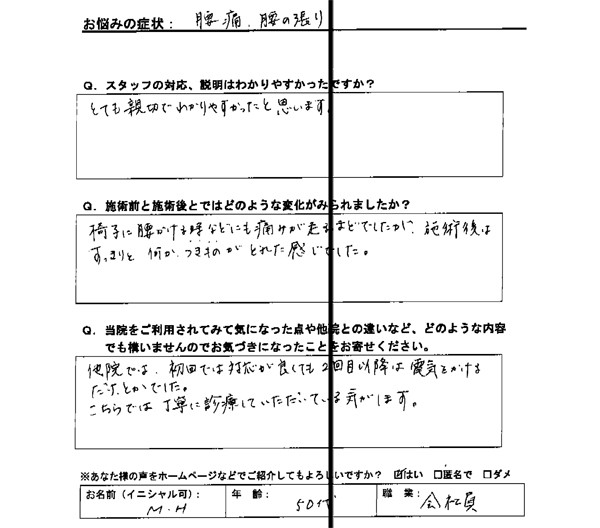 お悩みの症状： 腰痛、腰の張り
Q．スタッフの対応、説明はわかりやすかったですか？
とても親切でわかりやすかったと思います。
Q．施術前と施術後とではどのような変化がみられましたか？
椅子に腰かける時などにも痛みが走るほどでしたが、施術後は
すっきりと、何か、つきものがとれた感じでした。
Q．当院をご利用されてみて気になった点や他院との違いなど、どのような内容
でも構いませんのでお気づきになったことをお寄せください。
他院では、初回では対応が良くても2回目以降は電気をかける
だけ、とかでした。
こちらでは丁寧に診療していただいている気がします。
※あなた様の声をホームページなどでご紹介してもよろしいですか？ ☑はい □匿名で □ダメ
お名前（イニシャル可）： 年 齢： 職 業：
M.H 50代 会社員